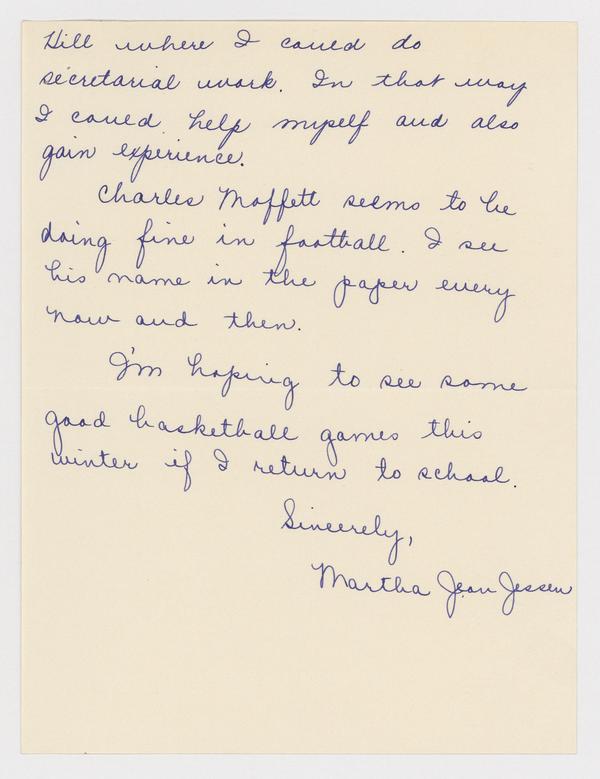 Hill where I could do
secretarial work. In that way
I could help myself and also
gain experience.
Charles Moffett seems to be
doing fine in football. I see
his name in the paper every
now and then.
I'm hoping to see some
good basketball games this
winter if I return to school.
Sincerely,
Martha Jean Jessen